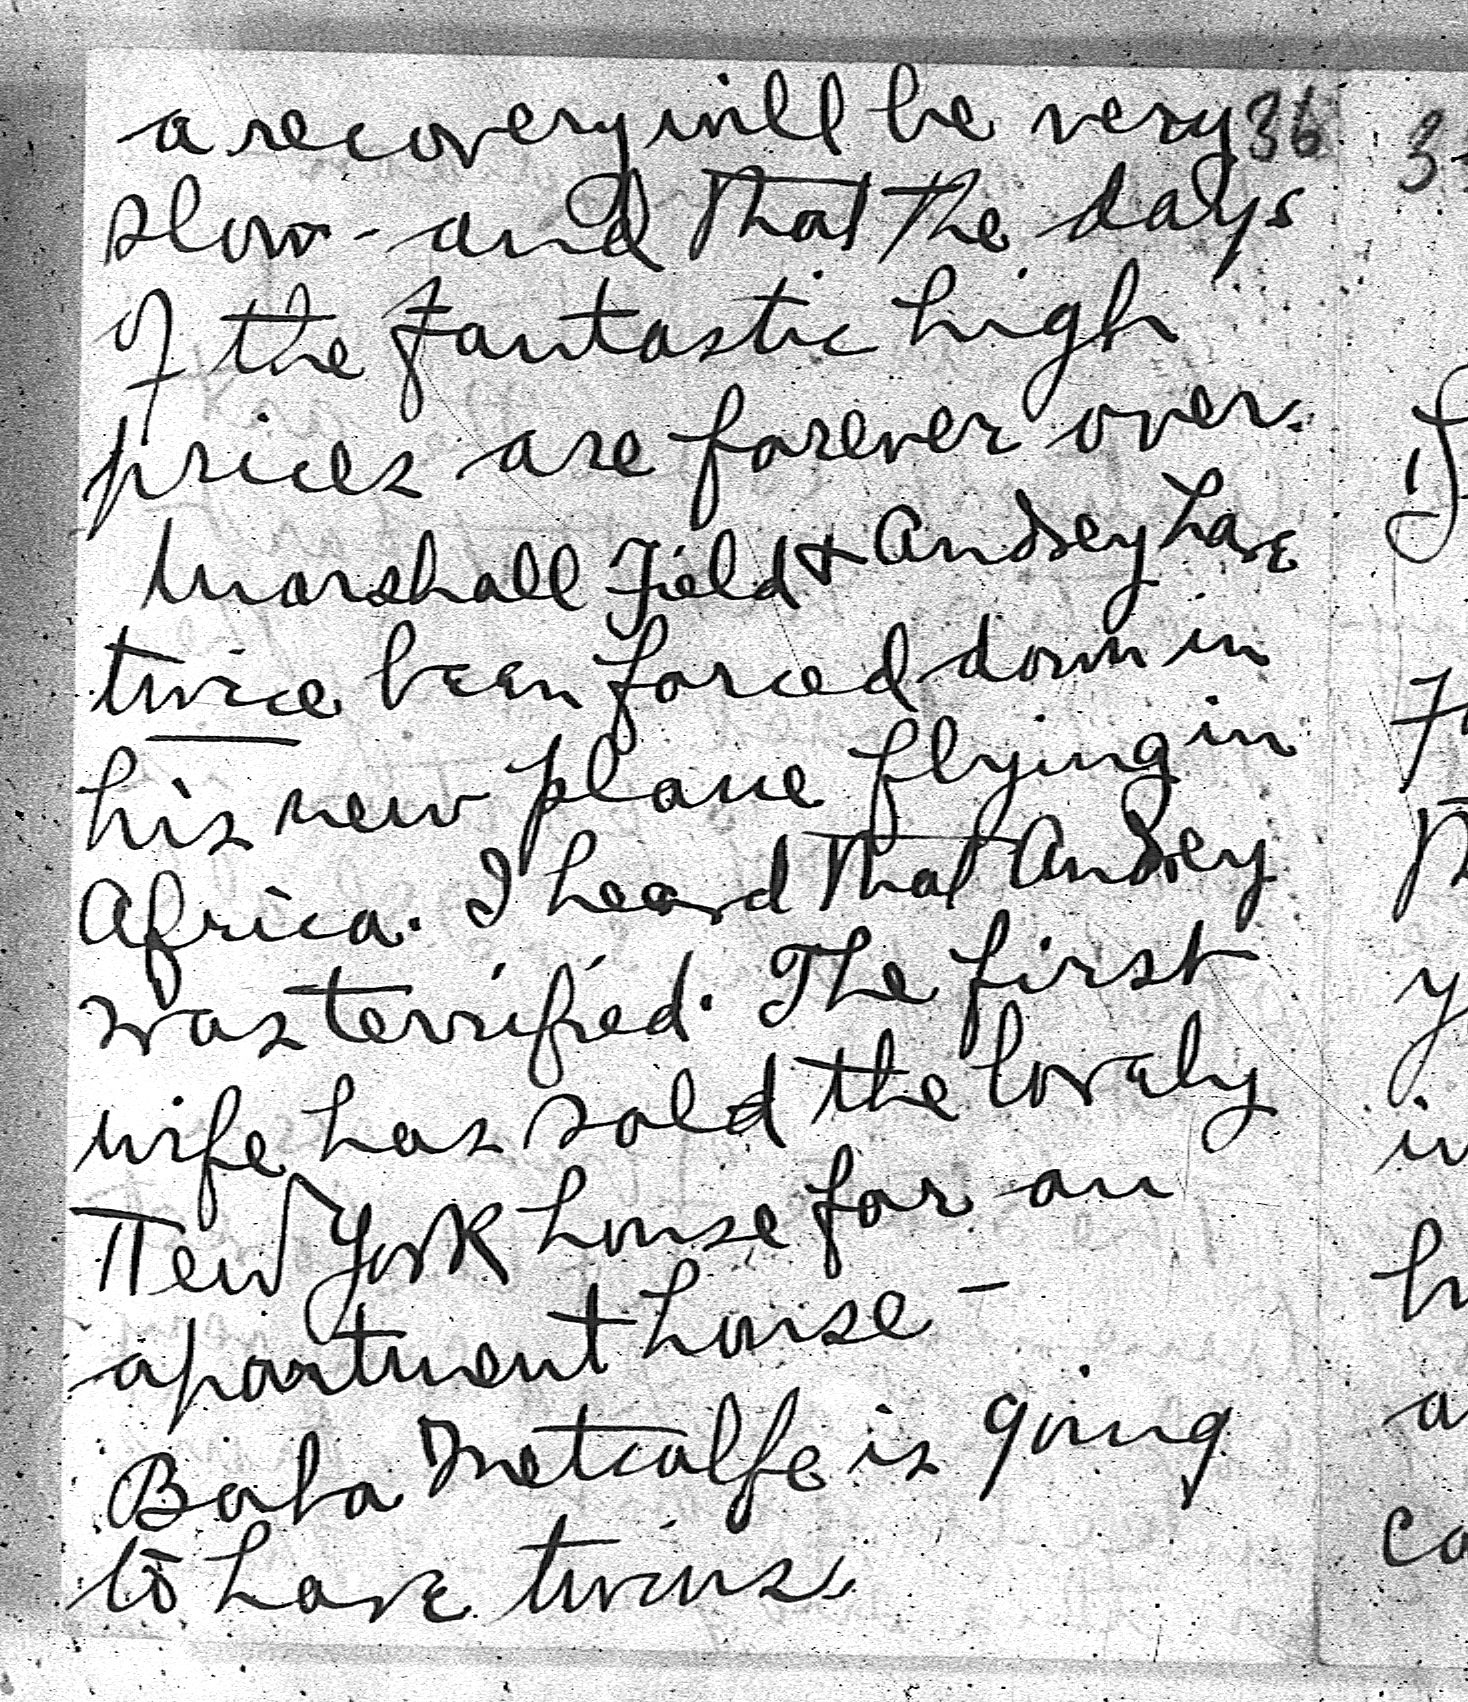 a recovery will be very 36
slow - and that the days
of the fantastic high
prices are forever over.
Marshall Field & Audrey have
twice been forced down in
his new plane flying in
Africa. I heard that Audrey
was terrified. The first
wife has sold the lovely
New York house for an
apartment house -
Baba Metcalfe is going
to have twins.